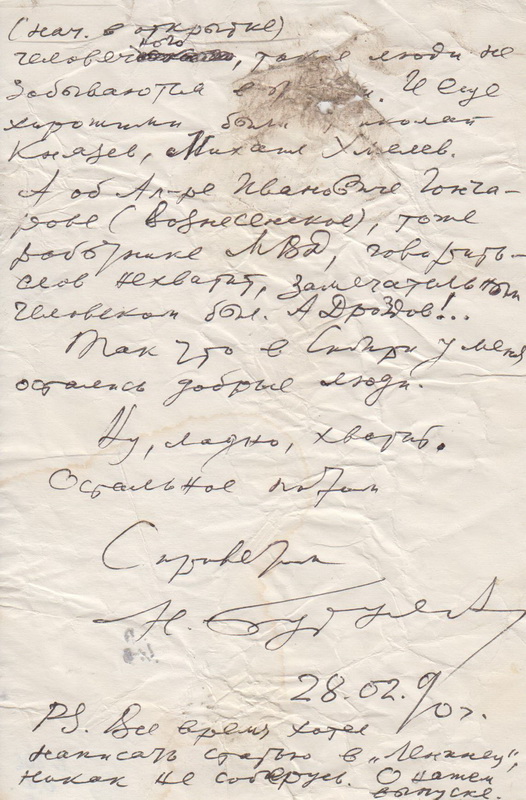 (нач. в открытке)
человечного, такие люди не
забываются в . И еще
хорошими были
Князев, Михаил Хмелев.
А об Ал-ре Ивановиче Гонча-
рове (Вознесенское), тоже
работнике МВД, говорить –
слов нехватит, замечательным
человеком был. А Дроздов!..
Так что в Сибири у меня
остались добрые люди.
Ну, ладно, хватит.
Остальное потом
С приветом
Н.
28.02.90г.
PS. Все время хотел
написать статью в „Ленинец",
никак не соберусь. О нашем
выпуске.